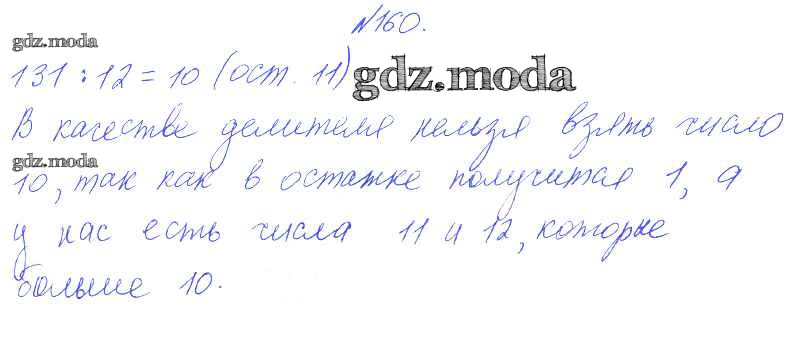 №160.
gdz.moda
131 : 12 = 10 (ост. 11)
gdz.moda
В качестве делителя нельзя взять число
gdz.moda
10, так как в остатке получится 1, а
у нас есть числа 11 и 12, которые
больше 10.